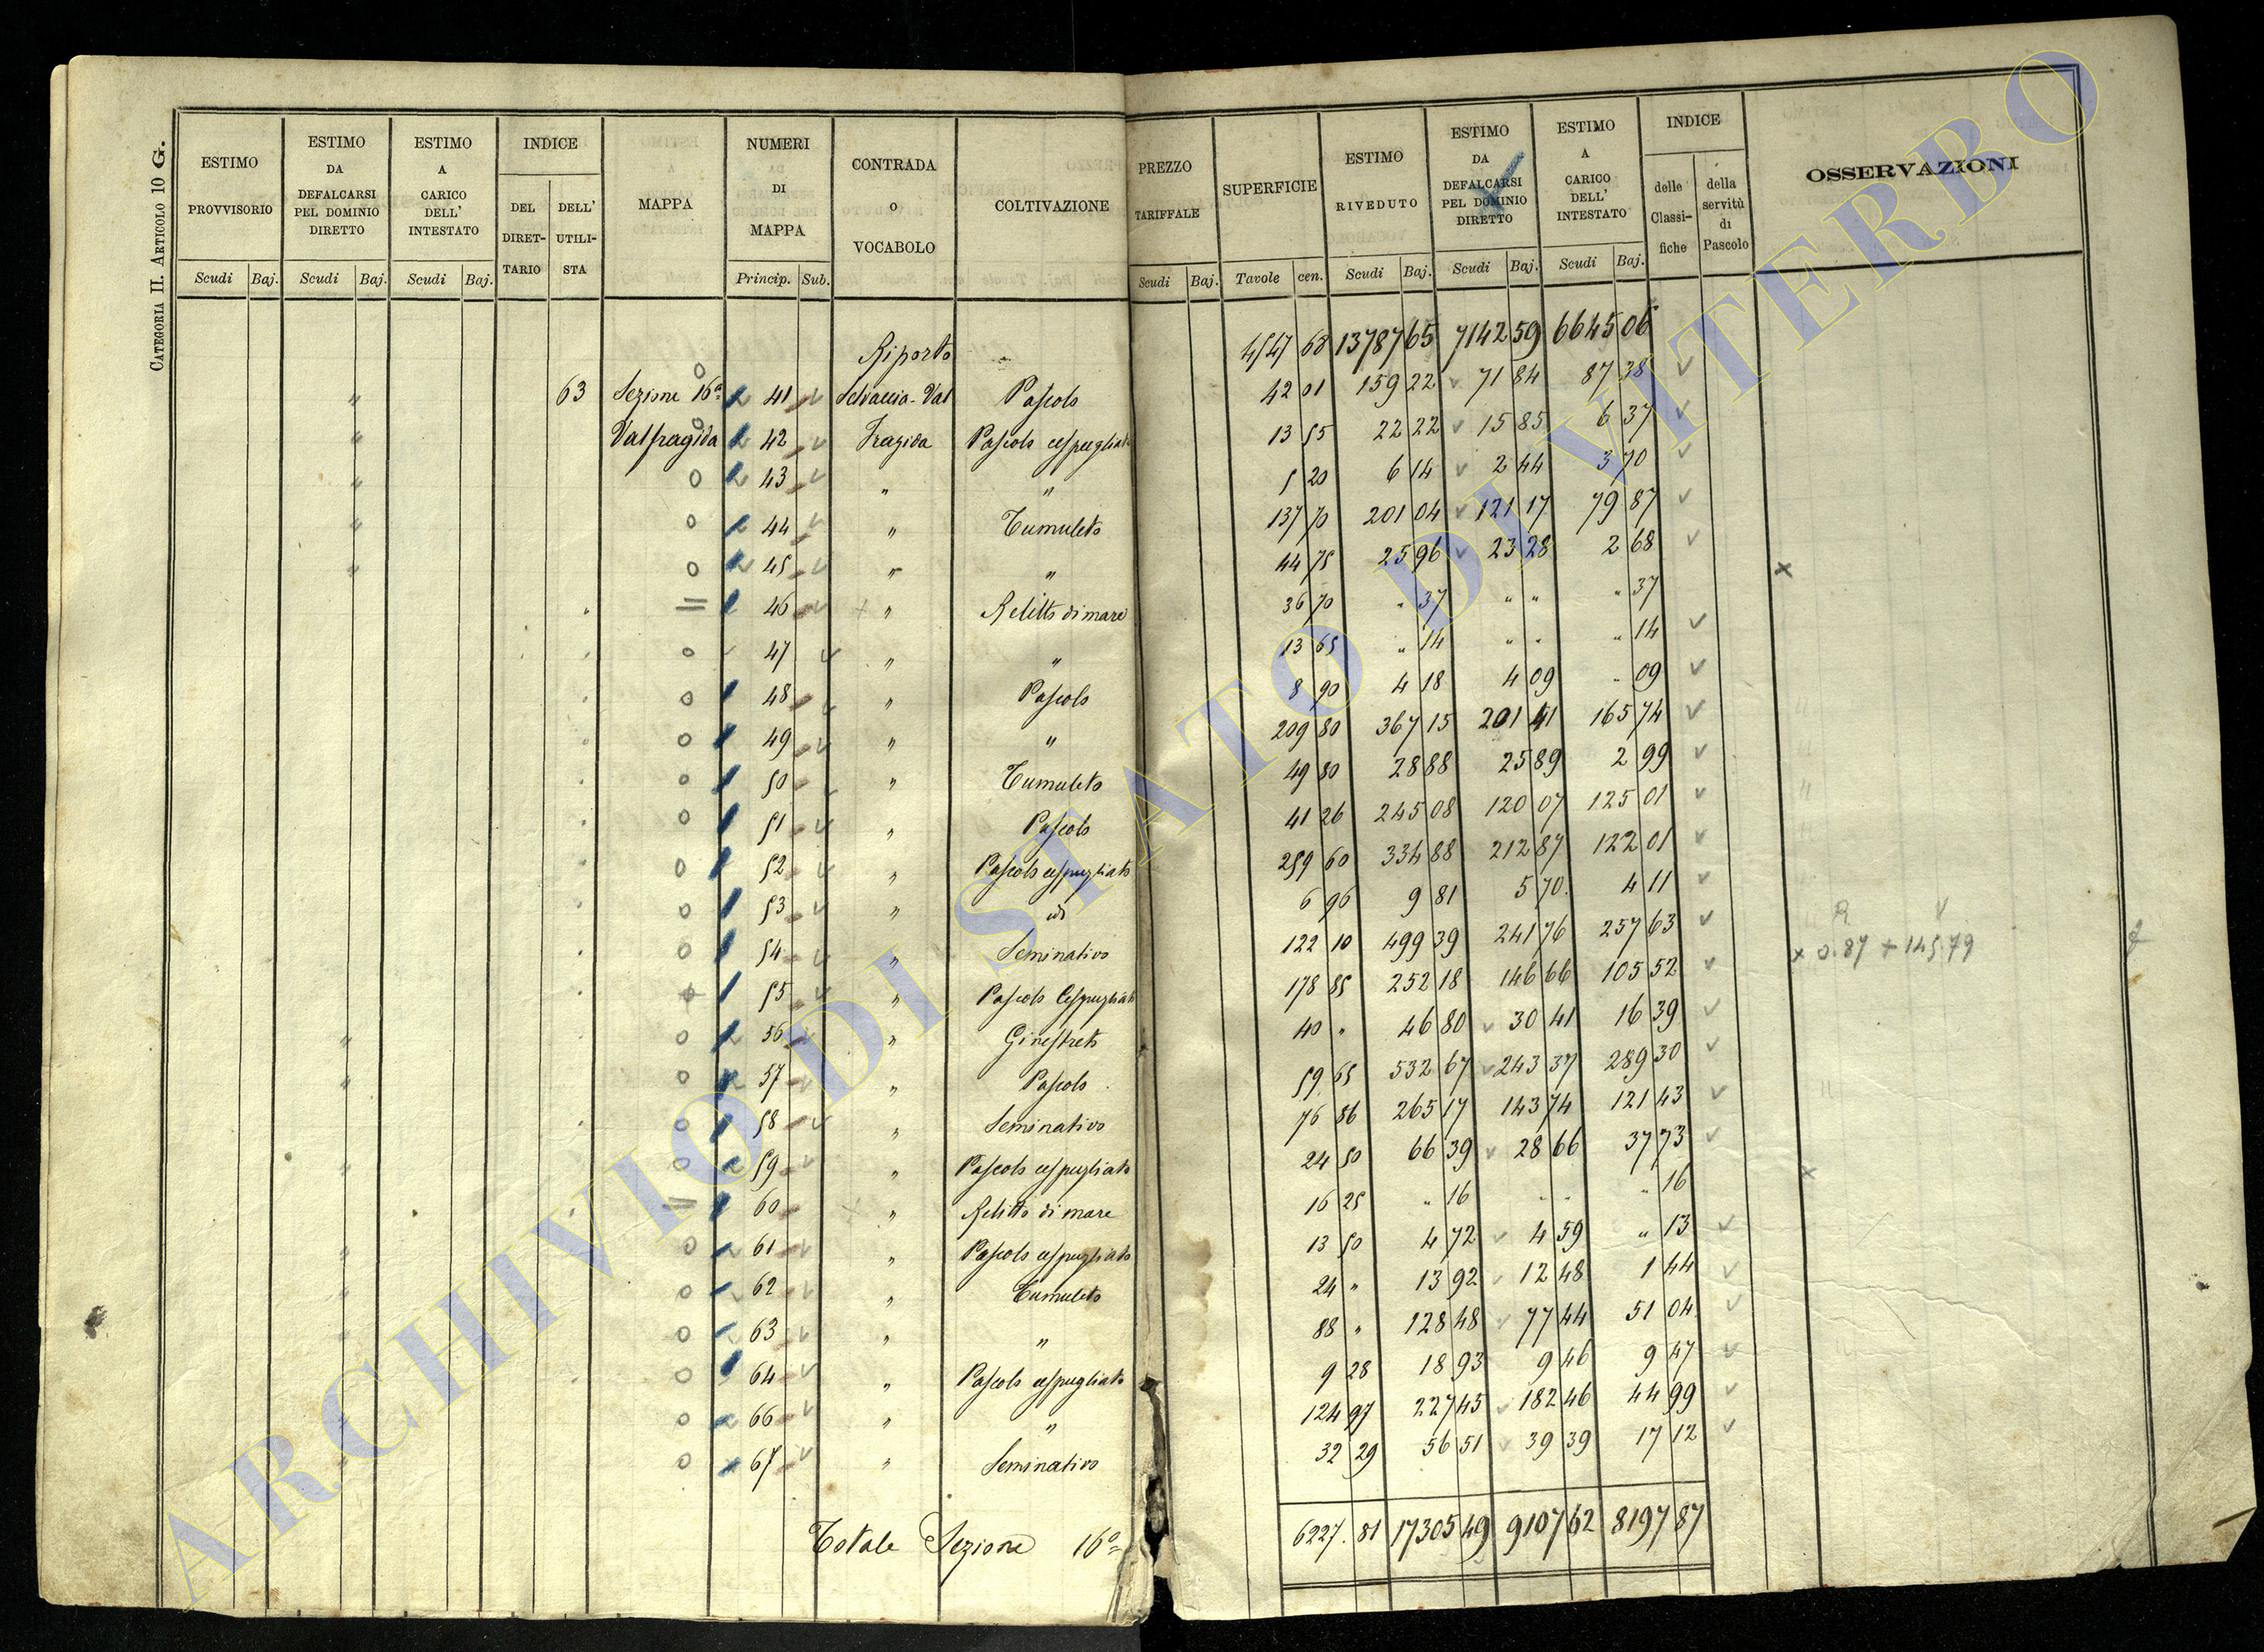 CATEGORIA II. ARTICOLO 10 G.
ESTIMO PROVVISORIO | ESTIMO DA DEFALCARSI PEL DOMINIO DIRETTO | ESTIMO A CARICO DELL' INTESTATO | INDICE | MAPPA | NUMERI DI MAPPA | CONTRADA O VOCABOLO | COLTIVAZIONE | PREZZO TARIFFALE | SUPERFICIE | ESTIMO RIVEDUTO | ESTIMO DA DEFALCARSI PEL DOMINIO DIRETTO | ESTIMO A CARICO DELL' INTESTATO | INDICE | OSSERVAZIONI
DEL DIRETTARIO | DELL' UTILISTA | delle Classifiche | della servitù di Pascolo
Scudi Baj. | Scudi Baj. | Scudi Baj. | Princip. Sub. | Scudi Baj. | Tavole cen. | Scudi Baj. | Scudi Baj. | Scudi Baj.
Riporto 4547 68 13787 65 7142 59 6645 06
" 63 Sezione 16a 41 Selvaccia-Val Pascolo 42 01 159 22 71 84 87 38
" Valfragida 42 Fragida Pascolo cespugliato 13 55 22 22 15 85 6 37
" 43 " " 5 20 6 14 2 44 3 70
" 44 " Tumuleto 137 70 201 04 121 17 79 87
" 45 " " 44 75 25 96 23 28 2 68
46 " Relitto di mare 36 70 " 37 " " " 37 x
47 " " 13 65 " 14 " " " 14
48 " Pascolo 8 90 4 18 4 09 " 09
49 " " 209 80 367 15 201 41 165 74
50 " Tumuleto 49 80 28 88 25 89 2 99
51 " Pascolo 41 26 245 08 120 07 125 01
52 " Pascolo cespugliato 259 60 334 88 212 87 122 01
53 " id 6 96 9 81 5 70 4 11
54 " Seminativo 122 10 499 39 241 76 257 63
55 " Pascolo Cespugliato 178 85 252 18 146 66 105 52 x 0.87 + 145.79
" 56 " Ginestreto 40 " 46 80 30 41 16 39
" 57 " Pascolo 59 65 532 67 243 37 289 30
58 " Seminativo 76 86 265 17 143 74 121 43
" 59 " Pascolo cespugliato 24 50 66 39 28 66 37 73
60 " Relitto di mare 16 25 " 16 " " " 16 x
" 61 " Pascolo cespugliato 13 50 4 72 4 59 " 13
" 62 " Tumuleto 24 " 13 92 12 48 1 44
" 63 " " 88 " 128 48 77 44 51 04
64 " Pascolo cespugliato 9 28 18 93 9 46 9 47
" 66 " " 124 97 227 45 182 46 44 99
" 67 " Seminativo 32 29 56 51 39 39 17 12
Totale Sezione 16a 6227.81 17305 49 9107 62 8197 87
ARCHIVIO DI STATO DI VITERBO